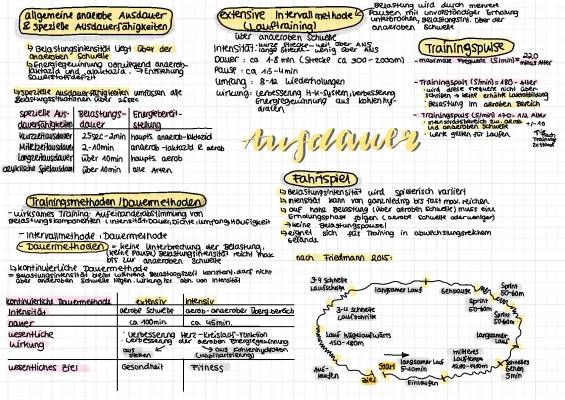 allgemeine anaerobe Ausdauer
& spezielle Ausdauerfähigkeiten
↳ Belastungsintensität liegt über der
anaeroben Schwelle
↳ Energiegewinnung vorwiegend anaerob-
laktazid und alaktazid → Entstehung
Sauerstoffdefizit
↳ spezielle Ausdauerfähigkeiten umfassen alle
Belastungssituationen über 25sec
spezielle Aus- Belastungs- Energiebereit-
dauerfähigkeiten dauer stellung
Kurzzeitausdauer 25sec-2min haupts anaerob-laktazid
Mittelzeitausdauer 2-10min anaerob-laktazid & aerob
Langzeitausdauer über 10min haupts. aerob
azyklische Spielausdauer über 10min alle Arten
extensive Intervallmethode
(Lauftraining)
über anaeroben Schwelle
Intensität: kurze Strecke - weit über ANS
lange Strecke - wenig über ANS
Dauer: ca. 1-8 min (Strecke ca 300-2000m)
Pause: ca 1,5-4min
Umfang: 8-12 Wiederholungen
Wirkung: Verbesserung H-K-System, Verbesserung
Energiegewinnung aus Kohlenhy-
draten
Belastung wird durch mehrere
Pausen mit unvollständiger Erholung
unterbrochen, Belastungsint. über der
anaeroben Schwelle
Trainingspulse
- maximale Frequenz (S/min) = 220 minus Alter
- Trainingspuls (S/min) = 180 - Alter
↳ wird diese Frequenz nicht über-
schritten → keine erhöhte Laktatbildung
Belastung im aeroben Bereich
- Trainingspuls (S/min) = 170 - 1/2 Alter +/- 10
↳ Intensitätsbereich zw. aerob
und anaeroben Schwelle
↳ Werte gelten für Laufen
Ausdauer
Trainingsmethoden/Dauermethoden
- wirksames Training: Aufeinanderabstimmung von
Belastungskomponenten (Intensität, Dauer, Dichte, Umfang, Häufigkeit)
- Intervallmethode & Dauermethode
↳ Dauermethoden = keine Unterbrechung der Belastung,
(keine Pause) Belastungsintensität reicht max
bis zur anaeroben Schwelle
↳ kontinuierliche Dauermethode
= Belastungsintensität bleibt während Belastungszeit konstant, darf nicht
über anaeroben Schwelle liegen. Wirkung ist abh. von Intensität
kontinuierliche Dauermethode extensiv intensiv
Intensität aerobe Schwelle aerob-anaerober Übergbereich
Dauer ca. 100min ca. 45min.
wesentliche · Verbesserung Herz-Kreislauf-Funktion
Wirkung · Verbesserung der aeroben Energiegewinnung
aus aus Kohlenhydraten
Fetten
wesentliches Ziel Gesundheit Fitness
Fahrtspiel
↳ Belastungsintensität wird spielerisch variiert
↳ Intensität kann von ganz niedrig bis fast max. reichen
↳ auf hohe Belastung (über aerober Schwelle) muss eine
Erholungsphase folgen (aerobe Schwelle oder weniger)
→ keine Belastungspause!
↳ eignet sich für Training in abwechslungsreichem
Gelände
nach Friedmann 2015:
3-4 schnelle
Laufschritte
langsamer Lauf
Gehpause
Sprint
50-60m
Sprint
50-60m
Sprint
50-60m
langsamer
Lauf
3-4 schnelle
Laufschritte
Lauf hügelaufwärts
150-180m
schnelles
Gehen
5min
mittleres
Lauftempo
langsamer Lauf
5-10min
Start
Ziel
Aus-
laufen
Einlaufen